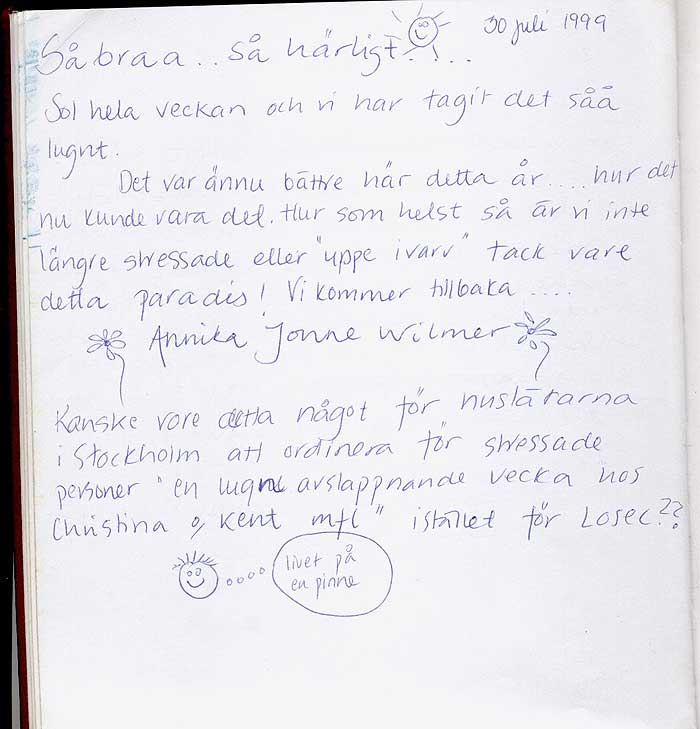 30 juli 1999
Så bra a.. så härligt!...
Sol hela veckan och vi har tagit det såå
lugnt.
Det var ännu bättre här detta år.... hur det
nu kunde vara det. Hur som helst så är vi inte
längre stressade eller "uppe i varv" tack vare
detta paradis! Vi kommer tillbaka ....
Annika Jonne Wilmer
Kanske vore detta något för husläkarna
i Stockholm att ordinera för stressade
personer "en lugn avslappnande vecka hos
Christina o, Kent mfl" istället för Losec??
livet på
en pinne